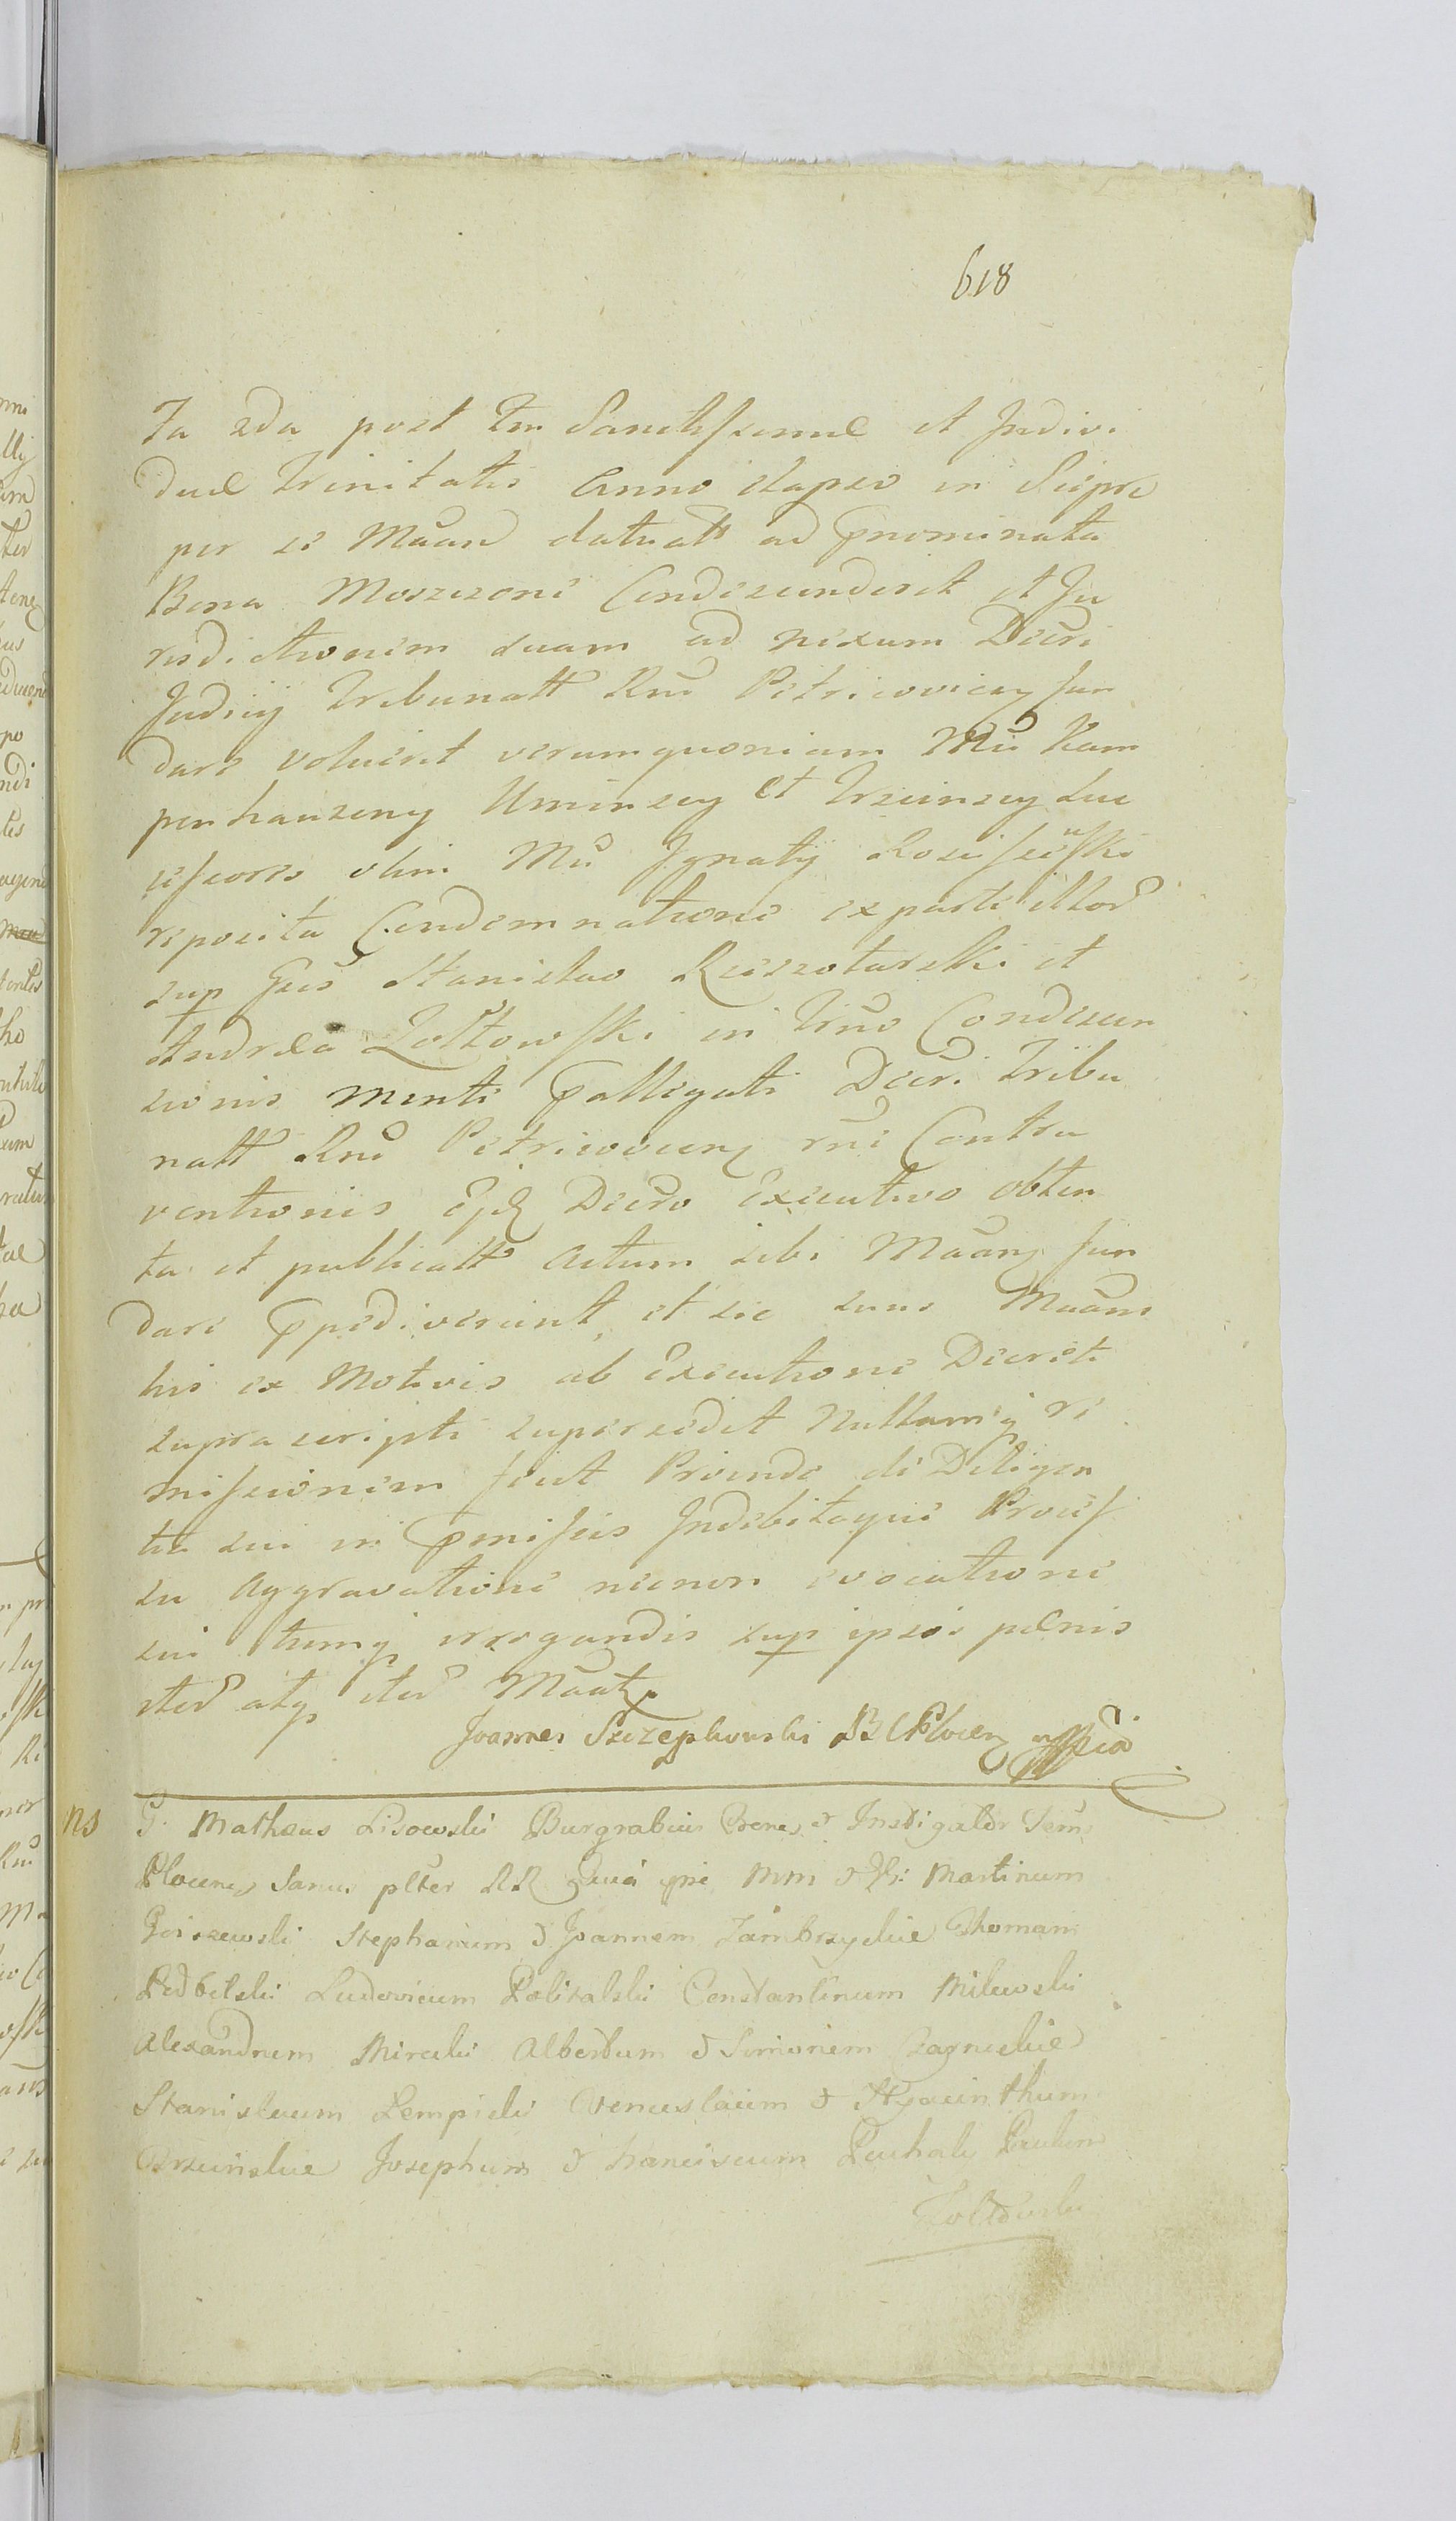 618
Ta 2da post Em Sanctissimæ et Indivi
duæ Trinitatis Anno elapso in Sierpc
per se Mãan datuatt ad prnominata
Bona Moszczone Condescenderit et Ju
risdictionem suam ad nexum Decri
Judicij Tribunatt Rnĩ Petricovicen fun
dare voluerit verumquoniam Mci Kam
penhauzeny Uminscy et Trzcinscy Suc
cessores olim Mci Ignatij
reposita Condemnatione ex parte illor
sup Gsis Stanislao et
Andrea Zoltowski in Trno Condescen
sionis menti pallegati Decri Tribu
natt Rnĩ Petricovicen rni Contra
ventionis ejd Decro Executivo obten
ta et publicatt actum sibi Mãan fun
dare ppediverint, et sic suus Mãans
his ex Motivis ab Executione Decreti
supra scripti supersedit Nullamq re
missionem fecit Proinde de Diligen
tia sui in pmissis Indebitaque Proces
su Aggravatione necnon evocatione
sui tumq irrogandis sup ipsos pænis
iter atq iter Mãat
Joannes Szczepkowski B C Plocen
ns G. Matheus Lisowski Burgrabius & Instigator
Plocen Sanus plter RR Quia ipse Mm & Martinum
Goiszewski Stephanum & Joannem Zambrzyckie Thomam
Podbilski Ludovicum Constantinum Milewski
Alexandrum Mirecki Albertum & Simonem
Stanislaum Lempicki Venceslaum & Hyacinthum
Brzeinskie Josephum & Franciscum